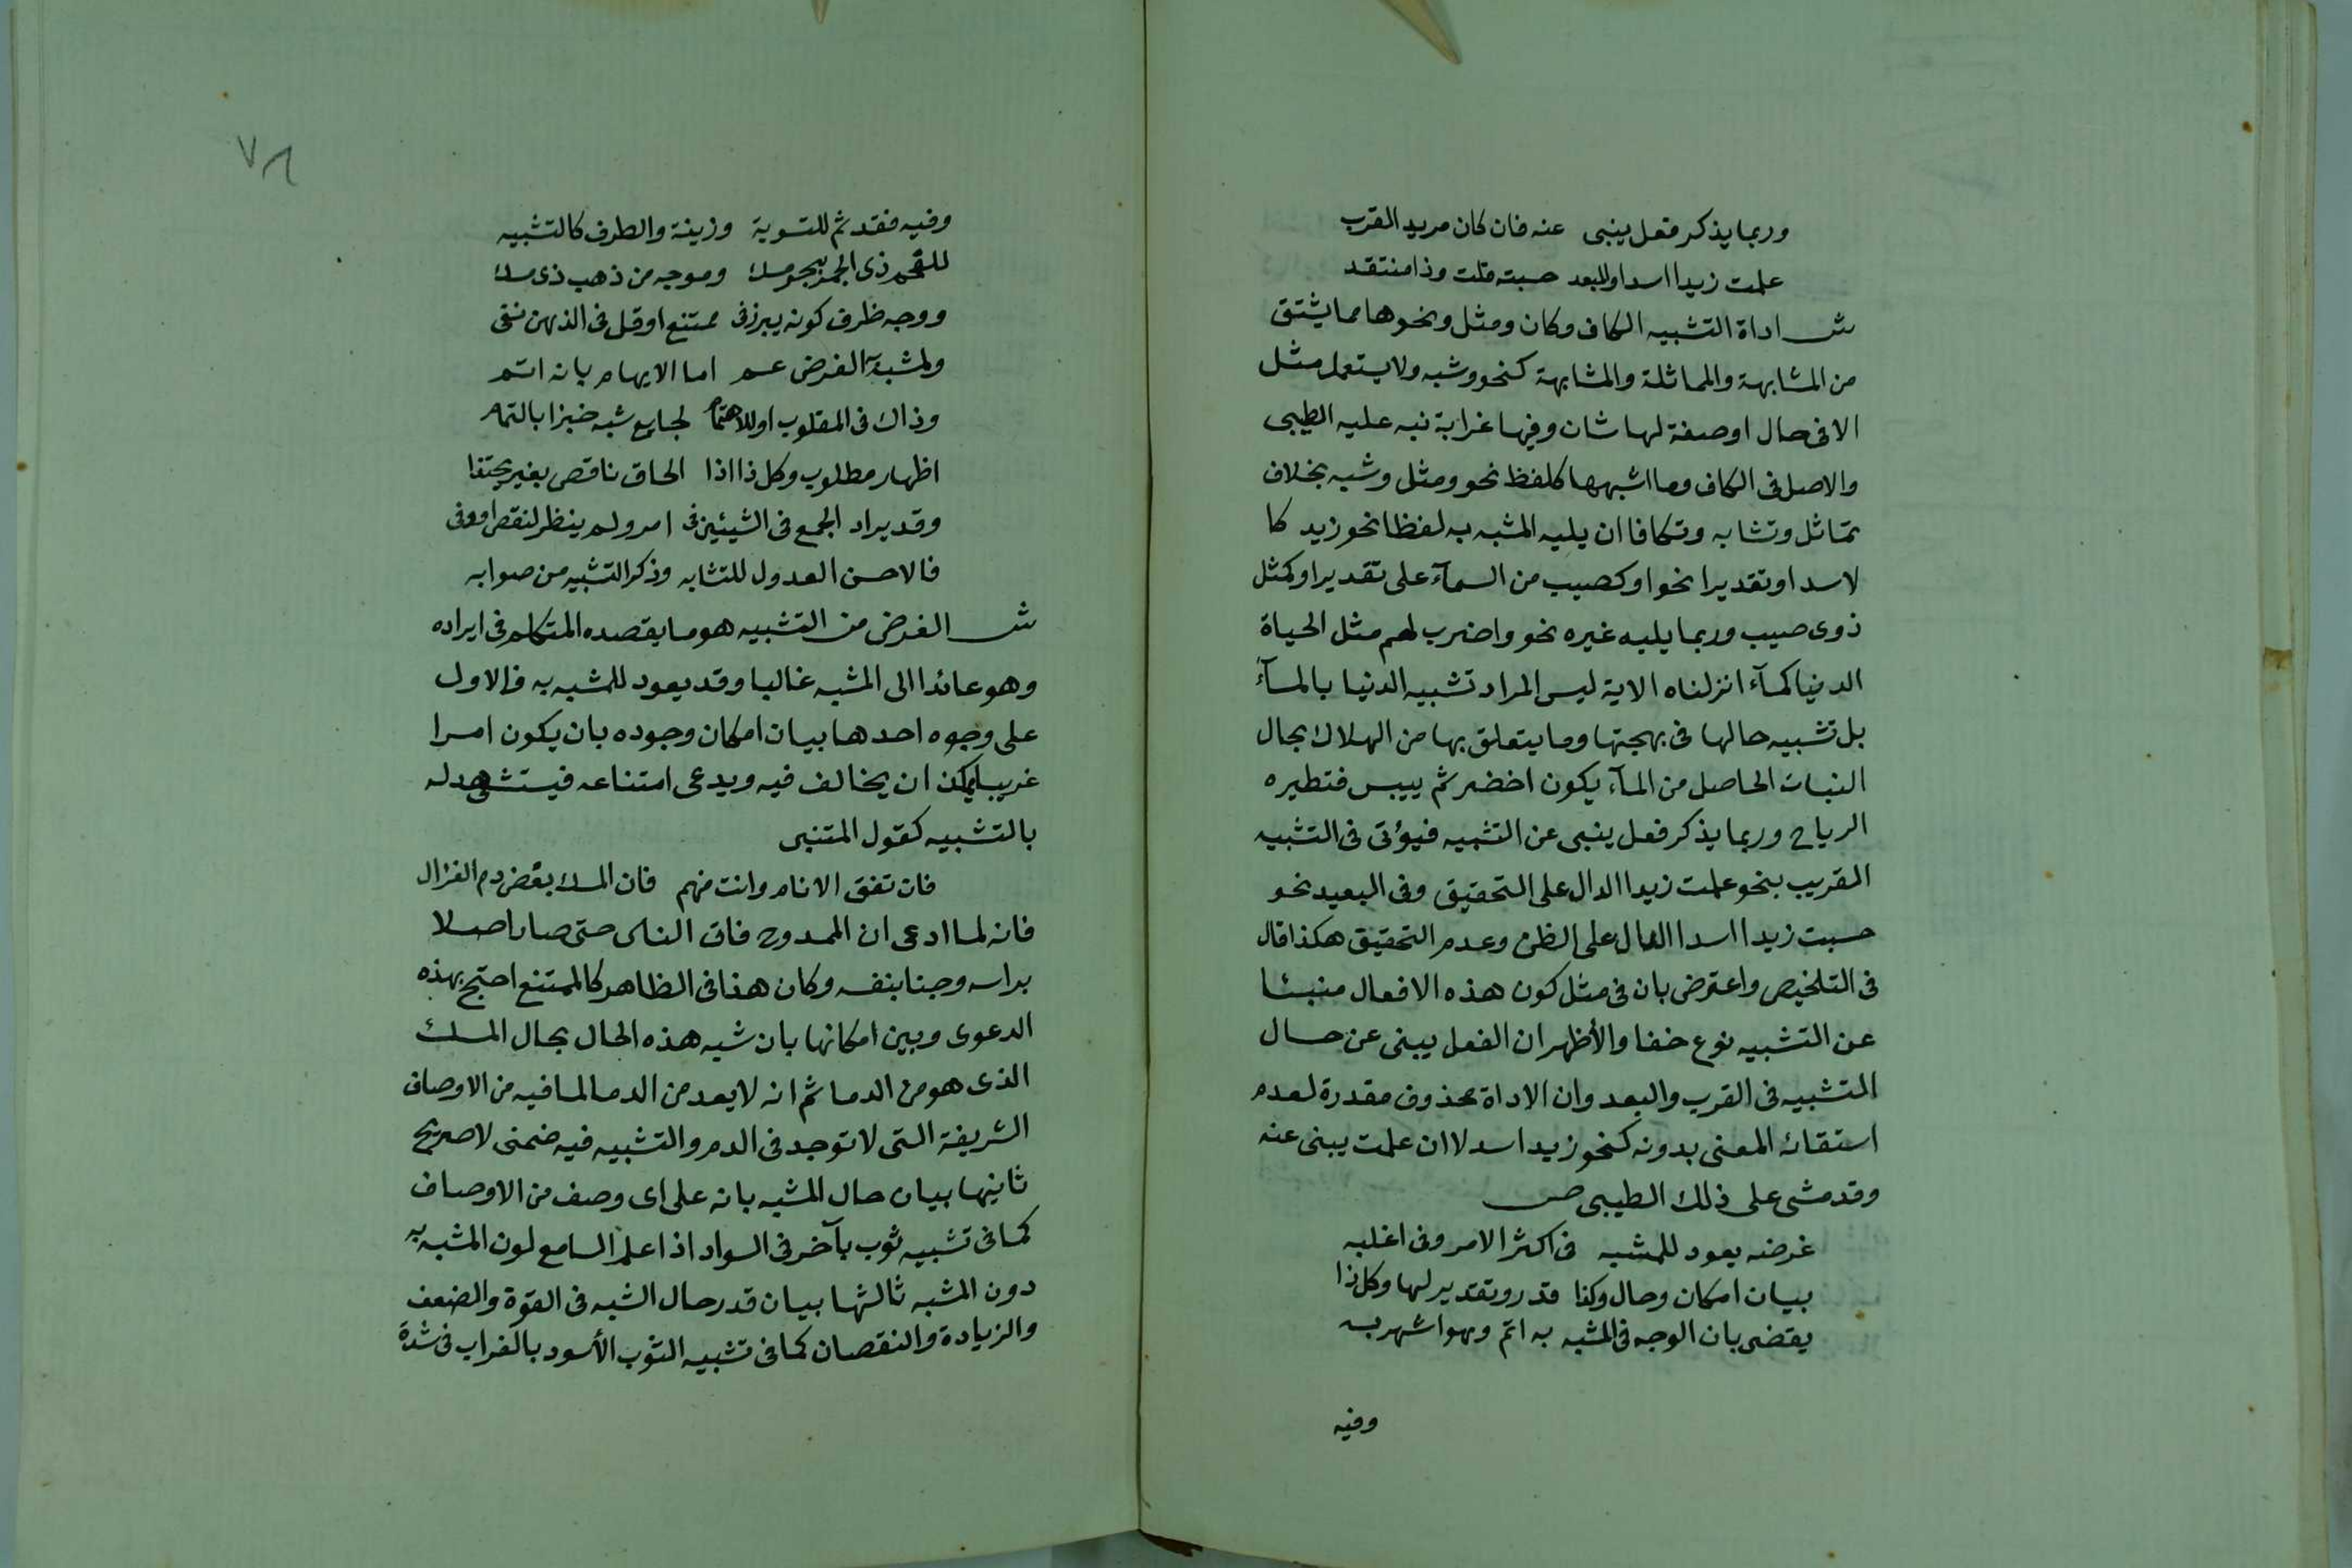 وربما يذكر فعل ينبى عنه فان كان مريد القرب
علمت زيدا اسدا وللبعد حسبته قلت وذا منتقد
ش اداة التشبيه الكاف وكان ومثل ونحوها مما يشتق
من المشابهة والمماثلة والمشابهة كنحو وشبه ولا يستعمل مثل
الا فى حال او صفة لها شان وفيها غرابة نبه عليه الطيبى
والاصل فى الكاف وما اشبهها كلفظ نحو ومثل وشبه بخلاف
تماثل وتشابه وتكافا ان يليه المشبه به لفظا نحو زيد كا
لاسد او تقديرا نحو او كصيب من السمآء على تقدير او كمثل
ذوى صيب وربما يليه غيره نحو واضرب لهم مثل الحياة
الدنيا كمآء انزلناه الاية ليس المراد تشبيه الدنيا بالمآء
بل تشبيه حالها فى بهجتها وما يتعلق بها من الهلاك بحال
النبات الحاصل من المآء يكون اخضر ثم ييبس فتطيره
الرياح وربما يذكر فعل ينبى عن التشبيه فيؤتى فى التشبيه
القريب بنحو علمت زيدا الدال على التحقيق وفى البعيد نحو
حسبت زيدا اسدا الدال على الظن وعدم التحقيق هكذا قال
فى التلخيص واعترض بان فى مثل كون هذه الافعال منبئا
عن التشبيه نوع خفا والأظهر ان الفعل يبنى عن حال
التشبيه فى القرب والبعد وان الاداة محذوف مقدرة لعدم
استقائه المعنى بدونه كنحو زيد اسد لا ان علمت يبنى عنه
وقد مشى على ذلك الطيبى ص
غرضه يعود للمشبه فى اكثر الامر وفى اغلبه
بيان امكان وحال وكذا قدر وتقدير لها وكل ذا
يقضى بان الوجه فى المشبه به اتم وهو اشهر به
وفيه
٧٨
وفيه فقد ثم للتسوية وزينة والطرف كالتشبيه
للفحم ذى الجمر ببحر مسك وموجه من ذهب ذى سلك
ووجه ظرف كونه يبرز فى ممتنع او قل فى الذهن نفى
ولمشبه الغرض عم اما الايهام بانه اتم
وذاك فى المقلوب او للاهتمام لجايع شبه خبزا بالتمام
اظهار مطلوب وكل ذا اذا الحاق ناقص بغير يحتذا
وقد يراد الجمع فى الشيئين فى امر ولم ينظر لنقص او وفى
فالاحسن العدول للتشابه وذكر التشبيه من صوابه
ش الغرض من التشبيه هو ما يقصده المتكلم فى ايراده
وهو عائدا الى المشبه غالبا وقد يعود للمشبه به فالاول
على وجوه احدها بيان امكان وجوده بان يكون امرا
غريبا يمكن ان يخالف فيه ويدعى امتناعه فيستشهد له
بالتشبيه كقول المتنبى
فان تفق الانام وانت منهم فان المسك بعض دم الغزال
فانه لما ادعى ان الممدوح فاق الناس حتى صار اصلا
براسه وجنسا بنفسه وكان هذا فى الظاهر كالممتنع احتج بهذه
الدعوى وبين امكانها بان شبه هذه الحال بحال المسك
الذى هو من الدما ثم انه لا يعد من الدما لما فيه من الاوصاف
الشريفة التى لا توجد فى الدم والتشبيه فيه ضمنى لا صريح
ثانيها بيان حال المشبه بانه على اى وصف من الاوصاف
كما فى تشبيه ثوب بآخر فى السواد اذا علم السامع لون المشبه به
دون المشبه ثالثها بيان قدر حال الشبه فى القوة والضعف
والزيادة والنقصان كما فى تشبيه الثوب الأسود بالغراب فى شدة